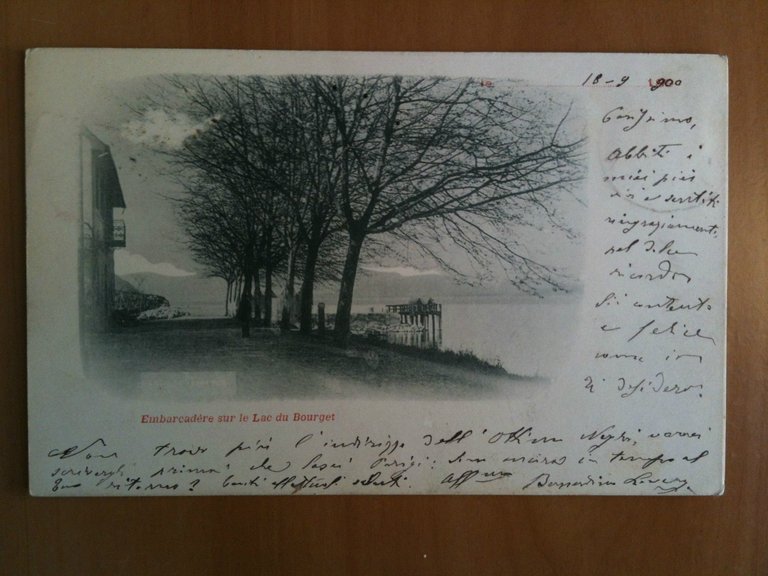 18-9 900
Carissimo,
Abbiti i
miei più
vivi e sentiti
ringraziamenti
pel dolce
ricordo
Sii contento
e felice
come io
ti desidero.
Embarcadère sur le Lac du Bourget
Non trovo più l'indirizzo dell'Ottimo Negri, vorrei
scrivergli prima di Parigi: Sono ancora in tempo al
suo ritorno? Tanti affettuosi saluti. Aff.mo Bernardino